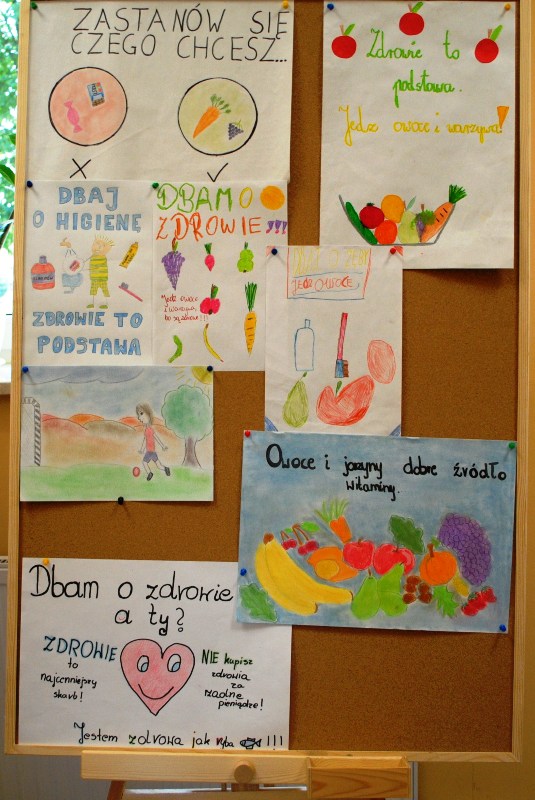 ZASTANÓW SIĘ
CZEGO CHCESZ...
Zdrowie to
podstawa.
Jedz owoce i warzywa!
DBAJ
O HIGIENĘ
ZDROWIE TO
PODSTAWA
DBAM O
ZDROWIE !!!
Jedz owoce
i warzywa,
bo są zdrowe!!!
JEDZ OWOCE
Owoce i jarzyny dobre źródło
witaminy.
Dbam o zdrowie
a ty?
ZDROWIE
to
najcenniejszy
skarb!
NIE kupisz
zdrowia
za
żadne
pieniądze!
Jestem zdrowa jak ryba !!!